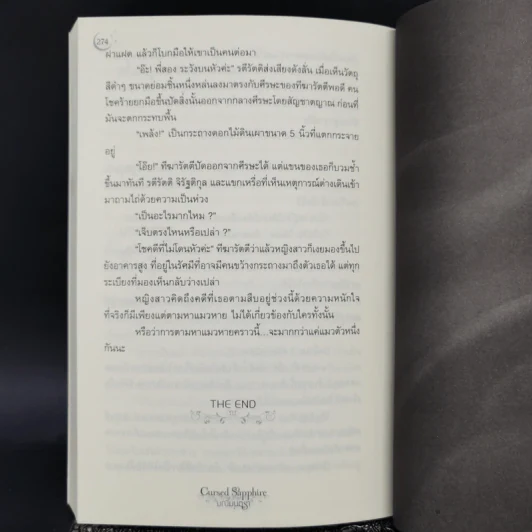 274
ฝาแฝด แล้วก็โบกมือให้เขาเป็นคนต่อมา
"อ๊ะ! พี่สอง ระวังบนหัวค่ะ" รตีรัตดิส่งเสียงดังลั่น เมื่อเห็นวัตถุ
สีดำๆ ขนาดย่อมชิ้นหนึ่งหล่นลงมาตรงกับศีรษะของทีฆารัตดีพอดี คน
โชคร้ายยกมือขึ้นปัดสิ่งนั้นออกจากกลางศีรษะโดยสัญชาตญาณ ก่อนที่
มันจะตกกระทบพื้น
"เพล้ง!" เป็นกระถางดอกไม้ดินเผาขนาด 5 นิ้วที่แตกกระจาย
อยู่
"โอ๊ย!" ทีฆารัตดีปัดออกจากศีรษะได้ แต่แขนของเธอก็บวมช้ำ
ขึ้นมาทันที รตีรัตดิ จิรัฐติกูล และแขกเหรื่อที่เห็นเหตุการณ์ต่างเดินเข้า
มาถามไถ่ด้วยความเป็นห่วง
"เป็นอะไรมากไหม ?"
"เจ็บตรงไหนหรือเปล่า ?"
"โชคดีที่ไม่โดนหัวค่ะ" ทีฆารัตดีว่าแล้วหญิงสาวก็เงยมองขึ้นไป
ยังอาคารสูง ที่อยู่ในรัศมีที่อาจมีคนขว้างกระถางมาถึงตัวเธอได้ แต่ทุก
ระเบียงที่มองเห็นกลับว่างเปล่า
หญิงสาวคิดถึงคดีที่เธอตามสืบอยู่ช่วงนี้ด้วยความหนักใจ
ที่จริงก็มีเพียงแต่ตามหาแมวหาย ไม่ได้เกี่ยวข้องกับใครทั้งนั้น
หรือว่าการตามหาแมวหายคราวนี้...จะมากกว่าแค่แมวตัวหนึ่ง
กันนะ
THE END
Cursed Sapphire